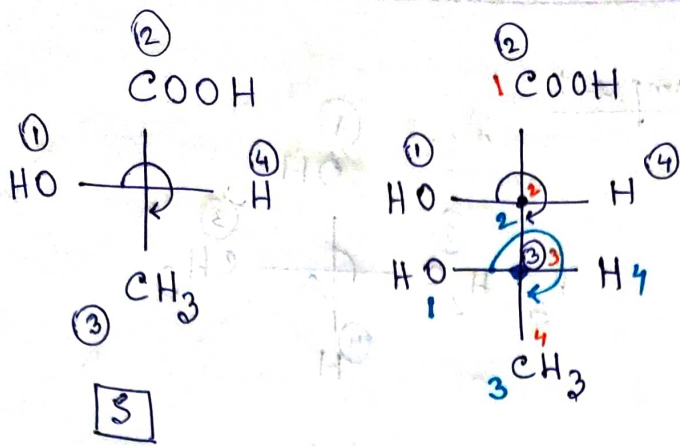 ②
COOH
①
④
HO
H
CH3
③
S
②
1 COOH
①
④
HO
2
H
2
③ 3
HO
H 4
1
4
3 CH3